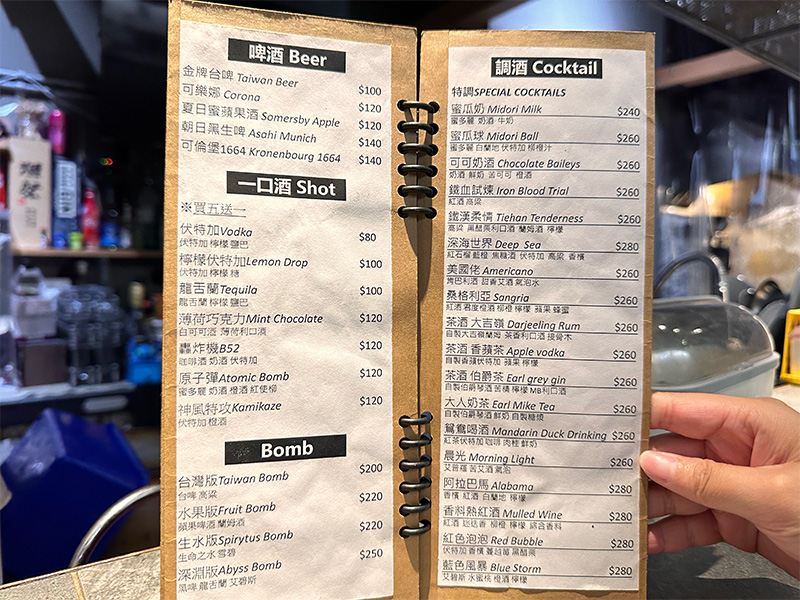 啤酒 Beer
金牌台啤 Taiwan Beer $100
可樂娜 Corona $120
夏日蜜蘋果酒 Somersby Apple $120
朝日黑生啤 Asahi Munich $140
可倫堡1664 Kronenbourg 1664 $140
一口酒 Shot
※買五送一
伏特加Vodka $80
伏特加 檸檬 鹽巴
檸檬伏特加Lemon Drop $100
伏特加 檸檬 糖
龍舌蘭Tequila $100
龍舌蘭 檸檬 鹽巴
薄荷巧克力Mint Chocolate $120
白可可酒 薄荷利口酒
轟炸機B52 $120
咖啡酒 奶酒 伏特加
原子彈Atomic Bomb $120
蜜多麗 奶酒 橙酒 紅使柳
神風特攻Kamikaze $120
伏特加 橙酒
Bomb
台灣版Taiwan Bomb $200
台啤 高粱
水果版Fruit Bomb $220
蘋果啤酒 蘭姆酒
生水版Spirytus Bomb $220
生命之水 雪碧
深淵版Abyss Bomb $250
黑啤 龍舌蘭 艾碧斯
調酒 Cocktail
特調SPECIAL COCKTAILS
蜜瓜奶 Midori Milk $240
蜜多麗 奶酒 牛奶
蜜瓜球 Midori Ball $260
蜜多麗 白蘭地 伏特加 柳橙汁
可可奶酒 Chocolate Baileys $260
奶酒 鮮奶 苦可可 橙酒
鐵血試煉 Iron Blood Trial $260
紅酒 高粱
鐵漢柔情 Tiehan Tenderness $260
高粱 黑醋栗利口酒 蘭姆酒 檸檬
深海世界 Deep Sea $280
紅石榴 藍橙 焦糖酒 伏特加 高粱 香檳
美國佬 Americano $260
肯巴利酒 甜香艾酒 氣泡水
桑格利亞 Sangria $260
紅酒 君度橙酒 柳橙 檸檬 蘋果 蜂蜜
茶酒 大吉嶺 Darjeeling Rum $260
自製大吉嶺蘭姆 茶香利口酒 接骨木
茶酒 香蘋茶 Apple vodka $260
自製香蘋伏特加 蘋果 檸檬
茶酒 伯爵茶 Earl grey gin $260
自製伯爵琴酒 苦橘 檸檬 MB利口酒
大人奶茶 Earl Mike Tea $260
自製伯爵琴酒 鮮奶 自製糖漿
鴛鴦喝酒 Mandarin Duck Drinking $260
紅茶伏特加 咖啡 肉桂 鮮奶
晨光 Morning Light $260
艾普羅 苦艾酒 氣泡
阿拉巴馬 Alabama $280
香檳 紅酒 白蘭地 檸檬
香料熱紅酒 Mulled Wine $280
紅酒 柳橙 檸檬 綜合香料
紅色泡泡 Red Bubble $280
伏特加 香檳 蔓越莓 黑醋栗
藍色風暴 Blue Storm $280
艾碧斯 水蜜桃 橙酒 檸檬